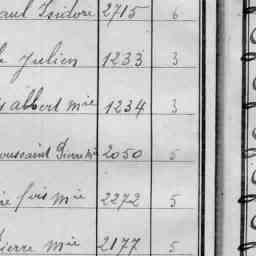 Paul Isidore 2715 6
Julien 1233 3
Albert Mie 1234 3
Toussaint Pierre Mie 2050 5
fois Mie 2272 5
Pierre Mie 2177 5